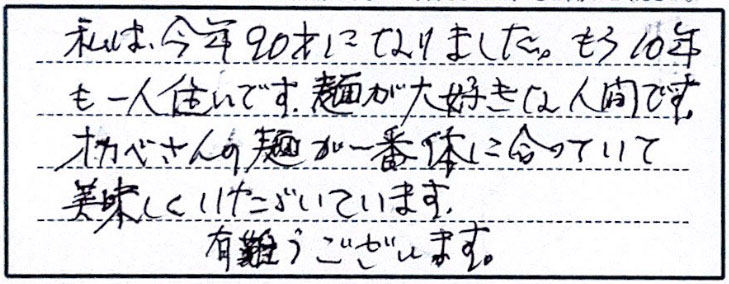 私は、今年90才になりました。もう10年
も一人住いです。麺が大好きな人間です。
オカベさんの麺が一番体に合っていて
美味しくいただいています。
有難うございます。